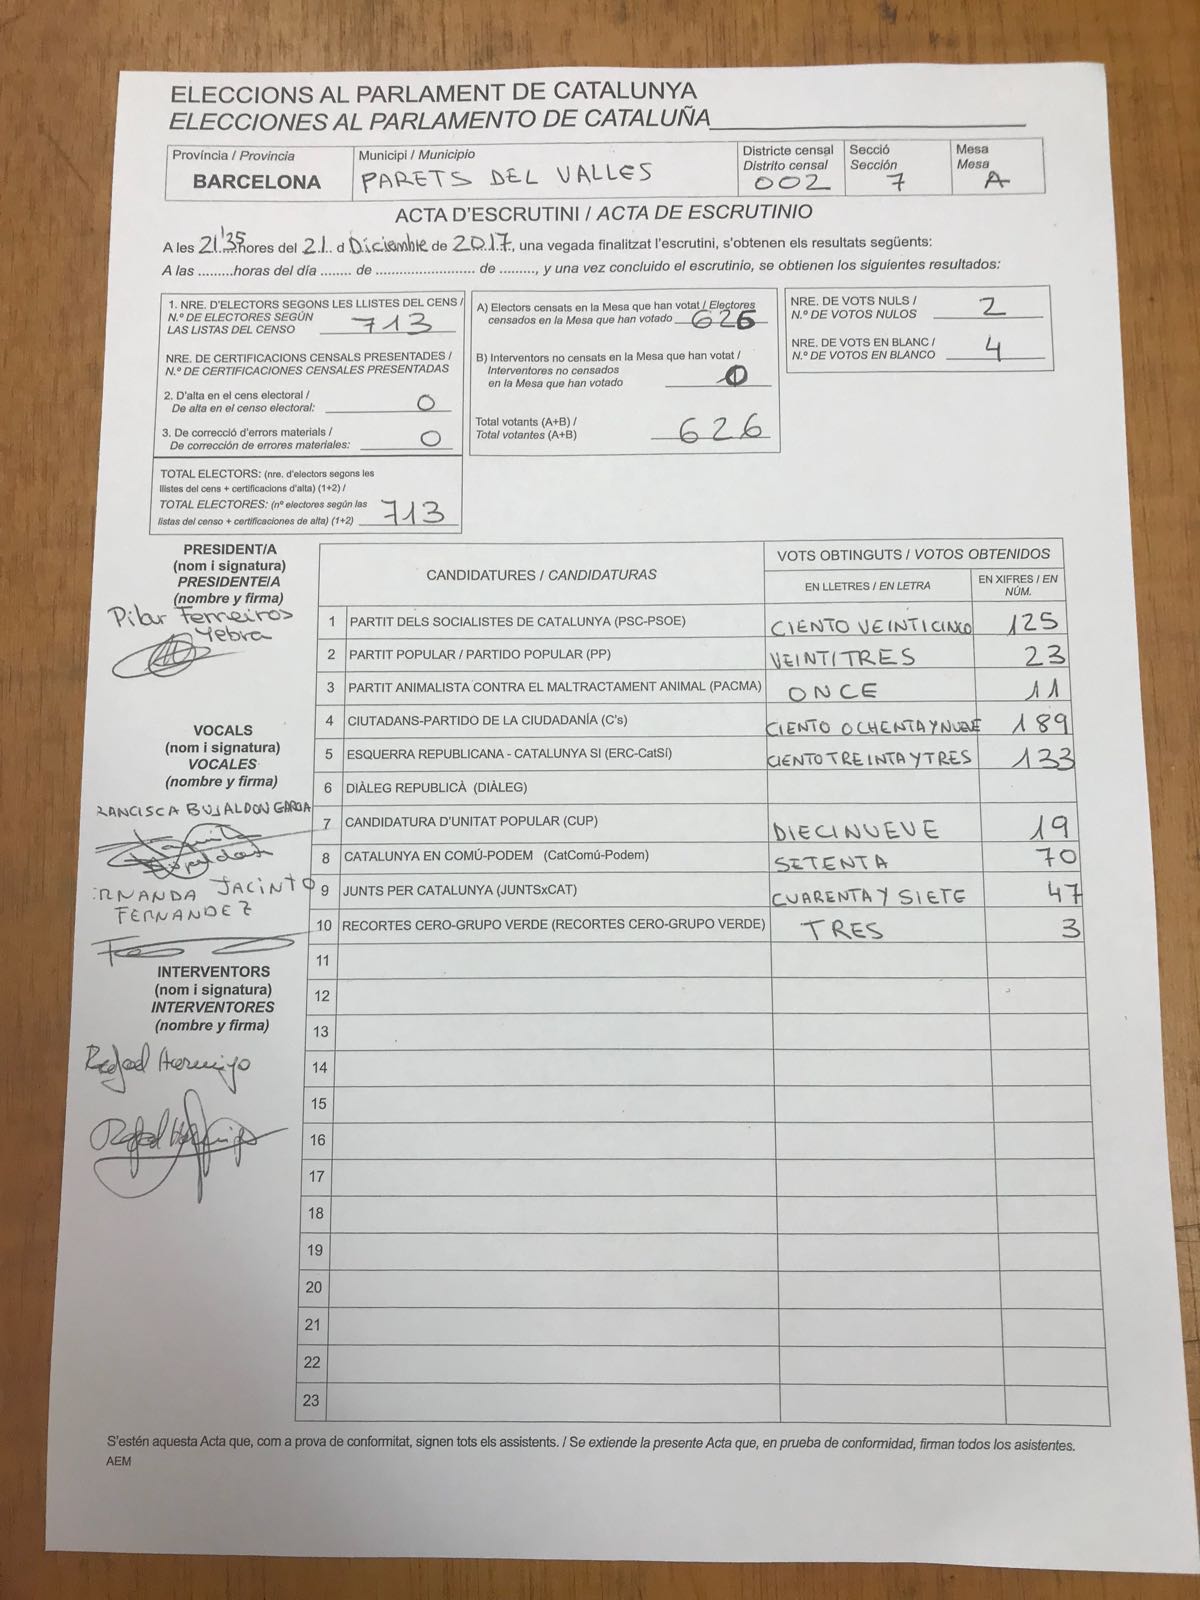 ELECCIONS AL PARLAMENT DE CATALUNYA
ELECCIONES AL PARLAMENTO DE CATALUÑA
Província / Provincia
BARCELONA
Municipi / Municipio
PARETS DEL VALLES
Districte censal
Distrito censal
002
Secció
Sección
7
Mesa
Mesa
A
ACTA D'ESCRUTINI / ACTA DE ESCRUTINIO
A les 21'35 hores del 21 d Diciembre de 2017, una vegada finalitzat l'escrutini, s'obtenen els resultats següents:
A las .........horas del día ....... de ......................... de ........., y una vez concluido el escrutinio, se obtienen los siguientes resultados:
1. NRE. D'ELECTORS SEGONS LES LLISTES DEL CENS /
N.º DE ELECTORES SEGÚN
LAS LISTAS DEL CENSO 713
NRE. DE CERTIFICACIONS CENSALS PRESENTADES /
N.º DE CERTIFICACIONES CENSALES PRESENTADAS
2. D'alta en el cens electoral /
De alta en el censo electoral: 0
3. De correcció d'errors materials /
De corrección de errores materiales: 0
TOTAL ELECTORS: (nre. d'electors segons les
llistes del cens + certificacions d'alta) (1+2) /
TOTAL ELECTORES: (nº electores según las
listas del censo + certificaciones de alta) (1+2) 713
A) Electors censats en la Mesa que han votat / Electores
censados en la Mesa que han votado 626
B) Interventors no censats en la Mesa que han votat /
Interventores no censados
en la Mesa que han votado 0
Total votants (A+B) /
Total votantes (A+B) 626
NRE. DE VOTS NULS /
N.º DE VOTOS NULOS 2
NRE. DE VOTS EN BLANC /
N.º DE VOTOS EN BLANCO 4
PRESIDENT/A
(nom i signatura)
PRESIDENTE/A
(nombre y firma)
Pilar Ferreiros
Yebra
VOCALS
(nom i signatura)
VOCALES
(nombre y firma)
RANCISCA BUJALDON GARCIA
RNANDA JACINTO
FERNANDEZ
INTERVENTORS
(nom i signatura)
INTERVENTORES
(nombre y firma)
Rafael Hormigo
CANDIDATURES / CANDIDATURAS
VOTS OBTINGUTS / VOTOS OBTENIDOS
EN LLETRES / EN LETRA
EN XIFRES / EN NÚM.
1 PARTIT DELS SOCIALISTES DE CATALUNYA (PSC-PSOE) CIENTO VEINTICINCO 125
2 PARTIT POPULAR / PARTIDO POPULAR (PP) VEINTITRES 23
3 PARTIT ANIMALISTA CONTRA EL MALTRACTAMENT ANIMAL (PACMA) ONCE 11
4 CIUTADANS-PARTIDO DE LA CIUDADANÍA (C's) CIENTO OCHENTA Y NUEVE 189
5 ESQUERRA REPUBLICANA - CATALUNYA SI (ERC-CatSí) CIENTO TREINTA Y TRES 133
6 DIÀLEG REPUBLICÀ (DIÀLEG)
7 CANDIDATURA D'UNITAT POPULAR (CUP) DIECINUEVE 19
8 CATALUNYA EN COMÚ-PODEM (CatComú-Podem) SETENTA 70
9 JUNTS PER CATALUNYA (JUNTSxCAT) CUARENTA Y SIETE 47
10 RECORTES CERO-GRUPO VERDE (RECORTES CERO-GRUPO VERDE) TRES 3
11
12
13
14
15
16
17
18
19
20
21
22
23
S'estén aquesta Acta que, com a prova de conformitat, signen tots els assistents. / Se extiende la presente Acta que, en prueba de conformidad, firman todos los asistentes.
AEM